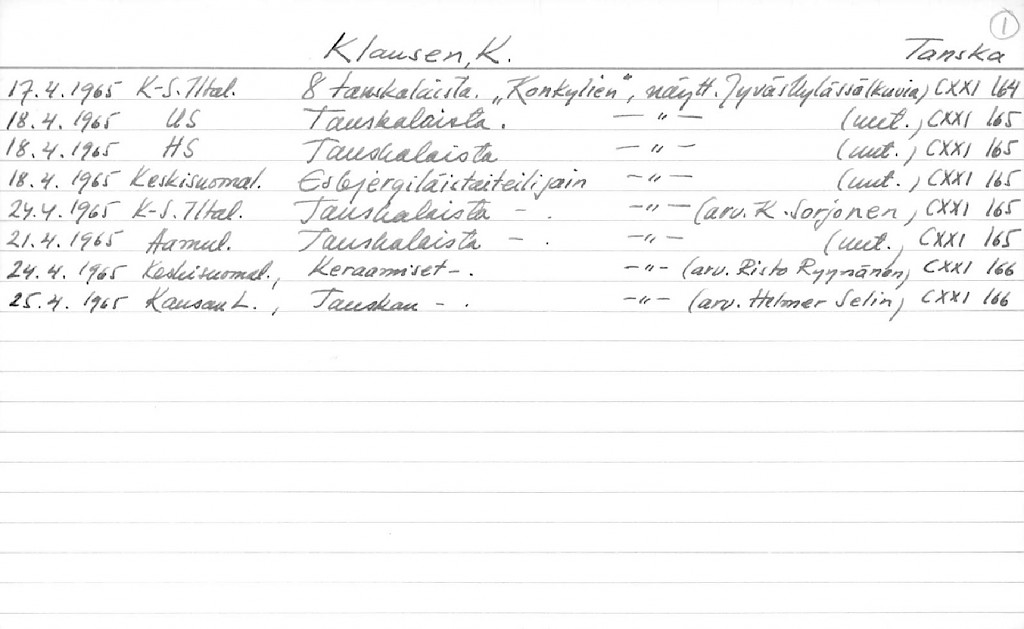 1
Klausen, K. Tanska
17.4.1965 K-S. Iltal. 8 tanskalaista. „Konkylien", näytt. Jyväskylässä(kuvia) CXXI 164
18.4.1965 US Tanskalaista. — " — (uut.) CXXI 165
18.4.1965 HS Tanskalaista — " — (uut.) CXXI 165
18.4.1965 Keskisuomal. Esbjergiläistaiteilijain — " — (uut.) CXXI 165
24.4.1965 K-S. Iltal. Tanskalaista - . — " — (arv. K. Sorjonen) CXXI 165
21.4.1965 Aamul. Tanskalaista - . — " — (uut.) CXXI 165
24.4.1965 Keskisuomal., Keraamiset - . — " — (arv. Risto Rypnänen) CXXI 166
25.4.1965 Kansan L., Tanskan - . — " — (arv. Helmer Selin) CXXI 166